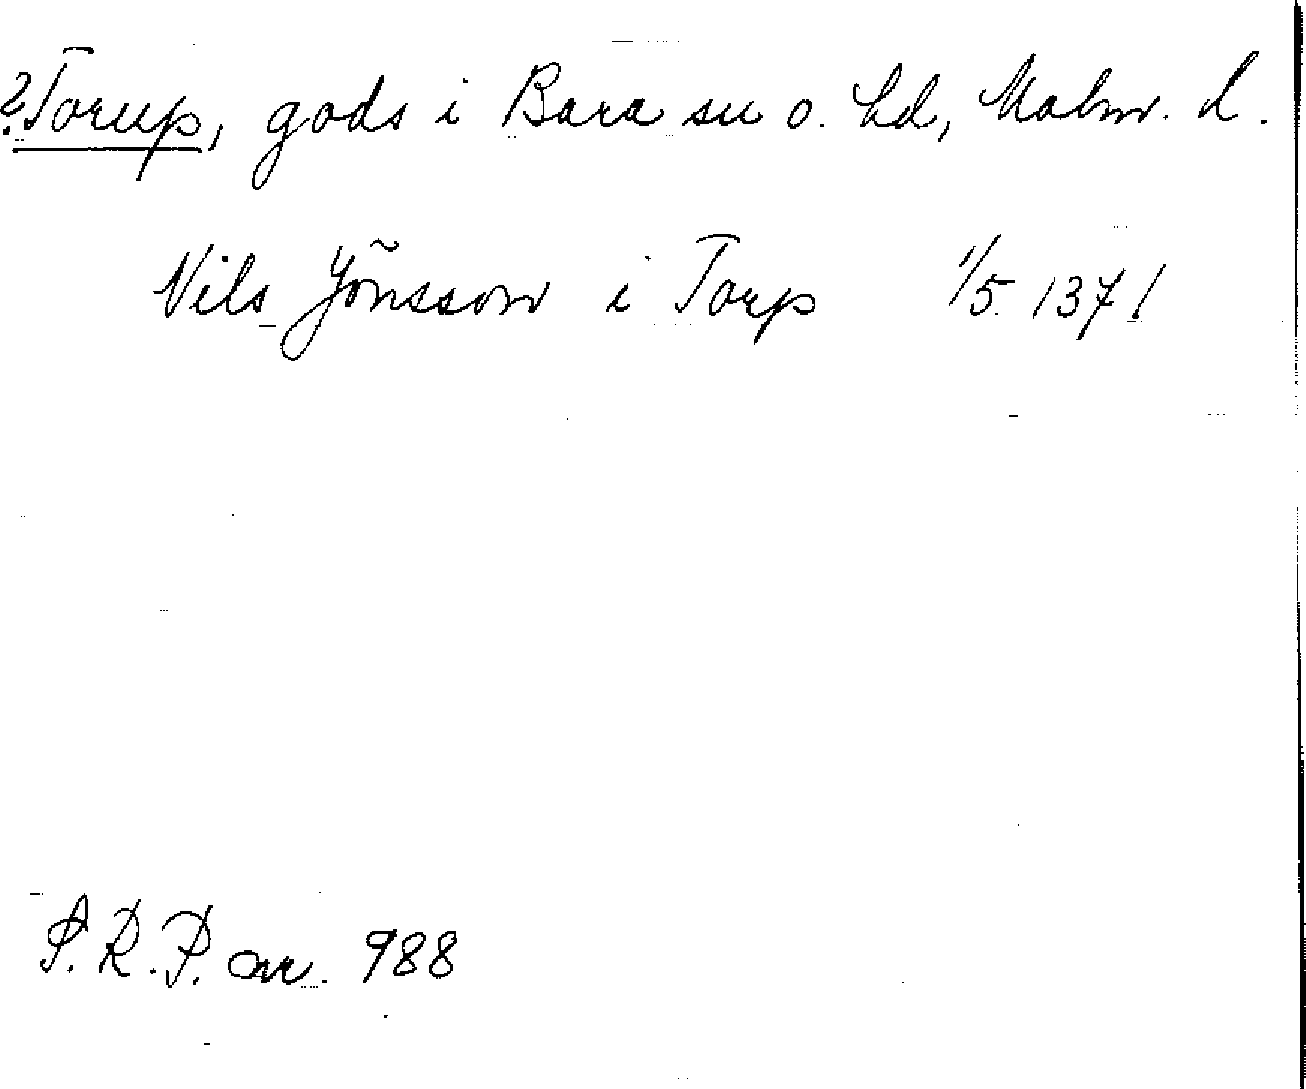 ?Torup, gods i Bara sn o. hd, Malm. L.
Nils Jönsson i Torp 1/5 1371
S.R.P. nr. 988